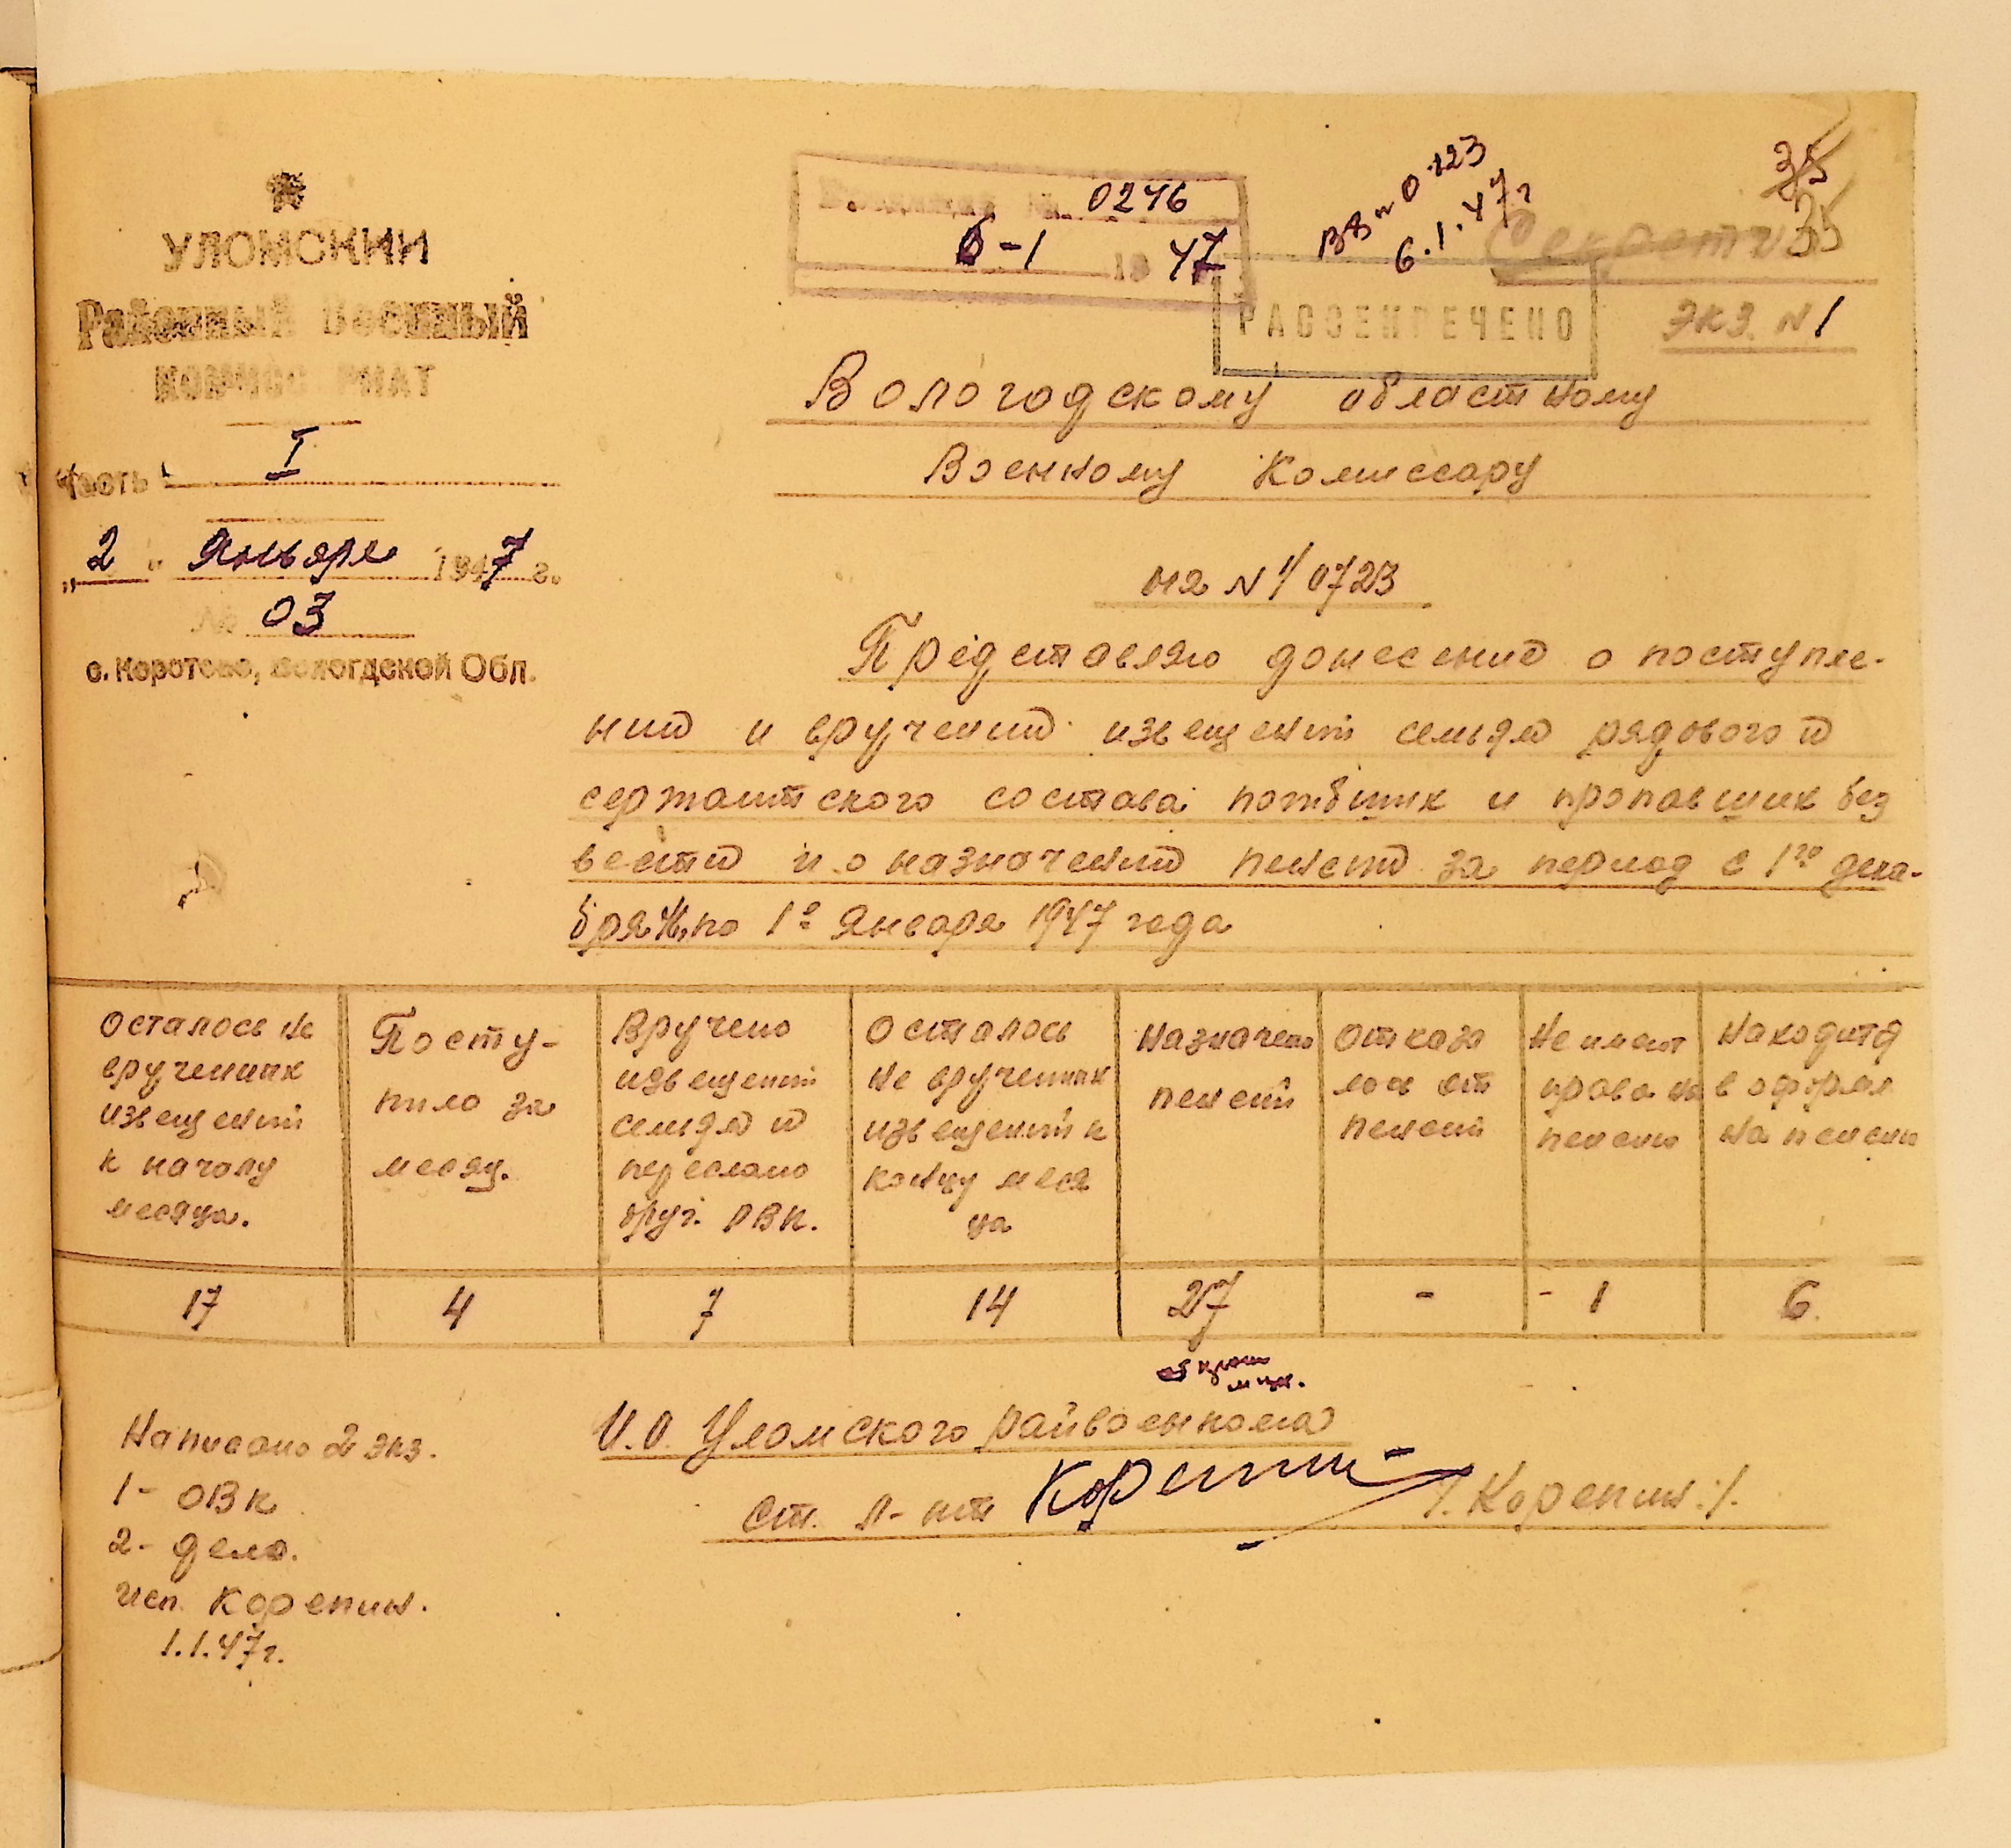 УЛОМСКИЙ
Районный Военный
КОМИССАРИАТ
Часть I
„2" Января 1947 г.
№ 03
с. Коротово, Вологдской Обл.
№ 0246
6-1 1947
6.1.47г
35
35
Секретно
РАССЕКРЕЧЕНО
Экз. N 1
Вологодскому областному
Военному Комиссару
на N 1/0723
Представляю донесение о поступле-
нии и вручении извещений семьям рядового и
сержантского состава погибших и пропавших без
вести и о назначении пенсии за период с 1го дека-
бря 46 по 1е Января 1947 года
Осталось не
врученных
извещений
к началу
месяца.
Посту-
пило за
месяц.
Вручено
извещений
семьям и
переслано
друг. РВК.
Осталось
не врученных
извещений к
концу меся
ца
Назначено
пенсий
Отказа
лось от
пенсий
Не имеют
права на
пенсию
Находится
в оформл
на пенсию
17 4 7 14 27 - - 1 6.
И.О. Уломского райвоенкома
ст. л-нт Корепин /. Корепин ./.
Написано 2 экз.
1 - ОВК
2 - дело.
исп. Корепин.
1.1.47г.